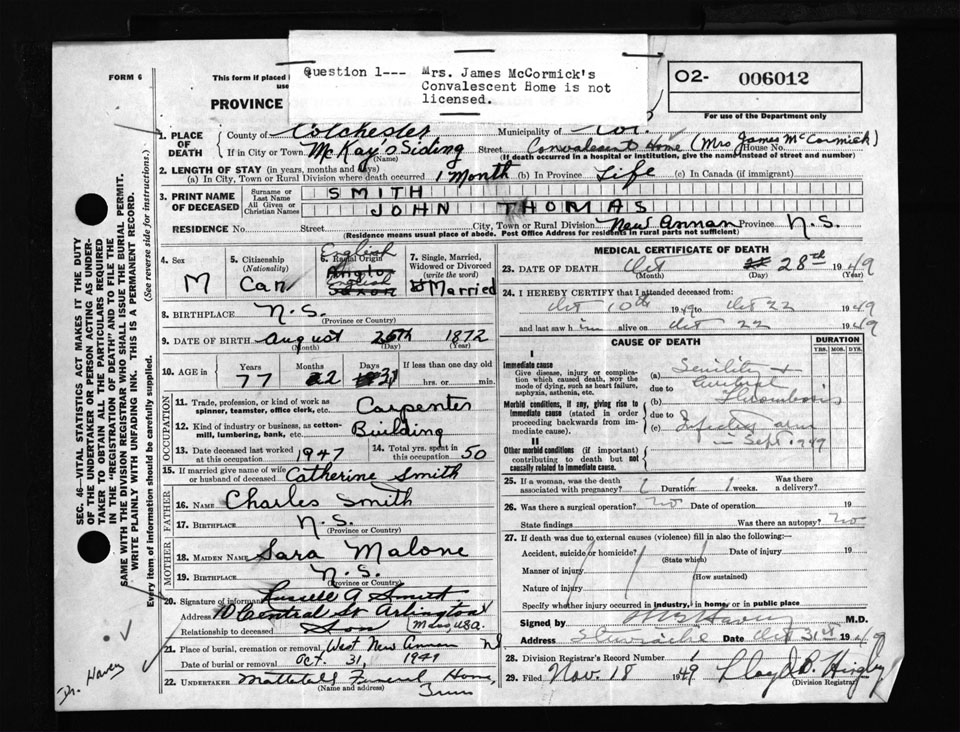 Question 1--- Mrs. James McCormick's
Convalescent Home is not
licensed.
FORM 6
This form if placed
use
PROVINCE
O2- 006012
For use of the Department only
1. PLACE OF DEATH
County of Colchester Municipality of Col.
If in City or Town McKay's Siding Street Convalescent Home (Mrs James McCormick) House No.
(Name) (If death occurred in a hospital or institution, give the name instead of street and number)
2. LENGTH OF STAY (in years, months and days)
(a) In City, Town or Rural Division where death occurred 1 Month (b) In Province Life (c) In Canada (if immigrant)
3. PRINT NAME OF DECEASED
Surname or Last Name SMITH
All Given or Christian Names JOHN THOMAS
RESIDENCE No. Street City, Town or Rural Division New Annan Province N.S.
(Residence means usual place of abode. Post Office Address for residents in rural parts not sufficient)
4. Sex M
5. Citizenship (Nationality) Can
6. Racial Origin English
7. Single, Married, Widowed or Divorced (write the word) Married
8. BIRTHPLACE N.S.
(Province or Country)
9. DATE OF BIRTH August 26th 1872
(Month) (Day) (Year)
10. AGE in Years Months Days If less than one day
77 2 hrs. or min.
OCCUPATION
11. Trade, profession, or kind of work as spinner, teamster, office clerk, etc. Carpenter
12. Kind of industry or business, as cotton-mill, lumbering, bank, etc. Building
13. Date deceased last worked at this occupation 1947
14. Total yrs. spent in this occupation 50
15. If married give name of wife or husband of deceased Catherine Smith
FATHER
16. Name Charles Smith
17. Birthplace N.S.
(Province or Country)
MOTHER
18. MAIDEN NAME Sara Malone
19. BIRTHPLACE N.S.
(Province or Country)
20. Signature of informant Russell A Smith
Address 10 Central St Arlington
Relationship to deceased Son (Mass, USA.
21. Place of burial, cremation or removal West New Annan NS
Date of burial or removal Oct. 31, 1949
22. UNDERTAKER Mattatall Funeral Home,
(Name and address) Truro
MEDICAL CERTIFICATE OF DEATH
23. DATE OF DEATH Oct 28th 1949
(Month) (Day)
24. I HEREBY CERTIFY that I attended deceased from:
Oct 10th 1949 to Oct 22 1949
and last saw him alive on Oct 22 1949
CAUSE OF DEATH
DURATION
YRS. MOS. DYS.
I
Immediate cause
Give disease, injury or complication which caused death, NOT the mode of dying, such as heart failure, asphyxia, asthenia, etc.
(a) Senility +
due to Cerebral
(b) Thrombosis
Morbid conditions, if any, giving rise to immediate cause (stated in order proceeding backwards from immediate cause).
due to
(c) Infection arm
in Sept. 1949
II
Other morbid conditions (if important) contributing to death but not causally related to immediate cause.
25. If a woman, was the death associated with pregnancy? Duration weeks. Was there a delivery?
26. Was there a surgical operation? no Date of operation. 19
State findings Was there an autopsy? no
27. If death was due to external causes (violence) fill in also the following:—
Accident, suicide or homicide? Date of injury 19
(State which)
Manner of injury
(How sustained)
Nature of injury
Specify whether injury occurred in industry, in home, or in public place
Signed by M.D.
Address Stewiacke Date Oct 31st 1949
28. Division Registrar's Record Number 1
29. Filed Nov. 18 1949 Lloyd B. Higby
(Division Registrar)
SEC. 46—VITAL STATISTICS ACT MAKES IT THE DUTY
OF THE UNDERTAKER OR PERSON ACTING AS UNDER-
TAKER TO OBTAIN ALL THE PARTICULARS REQUIRED
IN THE "REGISTRATION OF DEATH" AND TO FILE THE
SAME WITH THE DIVISION REGISTRAR WHO SHALL ISSUE THE BURIAL PERMIT.
WRITE PLAINLY WITH UNFADING INK. THIS IS A PERMANENT RECORD.
Every item of information should be carefully supplied. (See reverse side for instructions.)
Dr. Havey